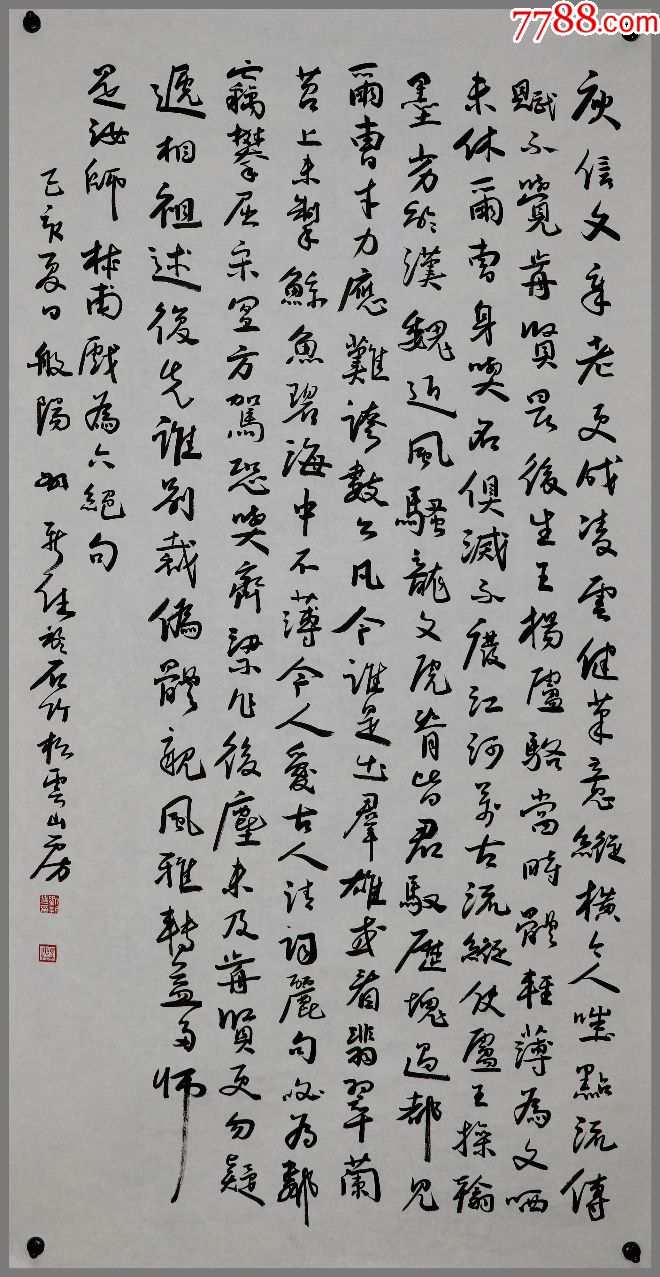 7788.com
庾信文章老更成凌雲健筆意縱橫今人嗤點流傳
賦不覺前賢畏後生王楊盧駱當時體輕薄為文哂
未休爾曹身與名俱滅不廢江河萬古流縱使盧王操翰
墨劣於漢魏近風騷龍文虎脊皆君馭歷塊過都見
爾曹才力應難誇數公凡今誰是出羣雄或看翡翠蘭
苕上未掣鯨魚碧海中不薄今人愛古人清詞麗句必為鄰
竊攀屈宋宜方駕恐與齊梁作後塵未及前賢更勿疑
遞相祖述復先誰別裁偽體親風雅轉益多師
是汝師 杜甫戲為六絕句
己亥夏日般陽 於石竹松雲山房